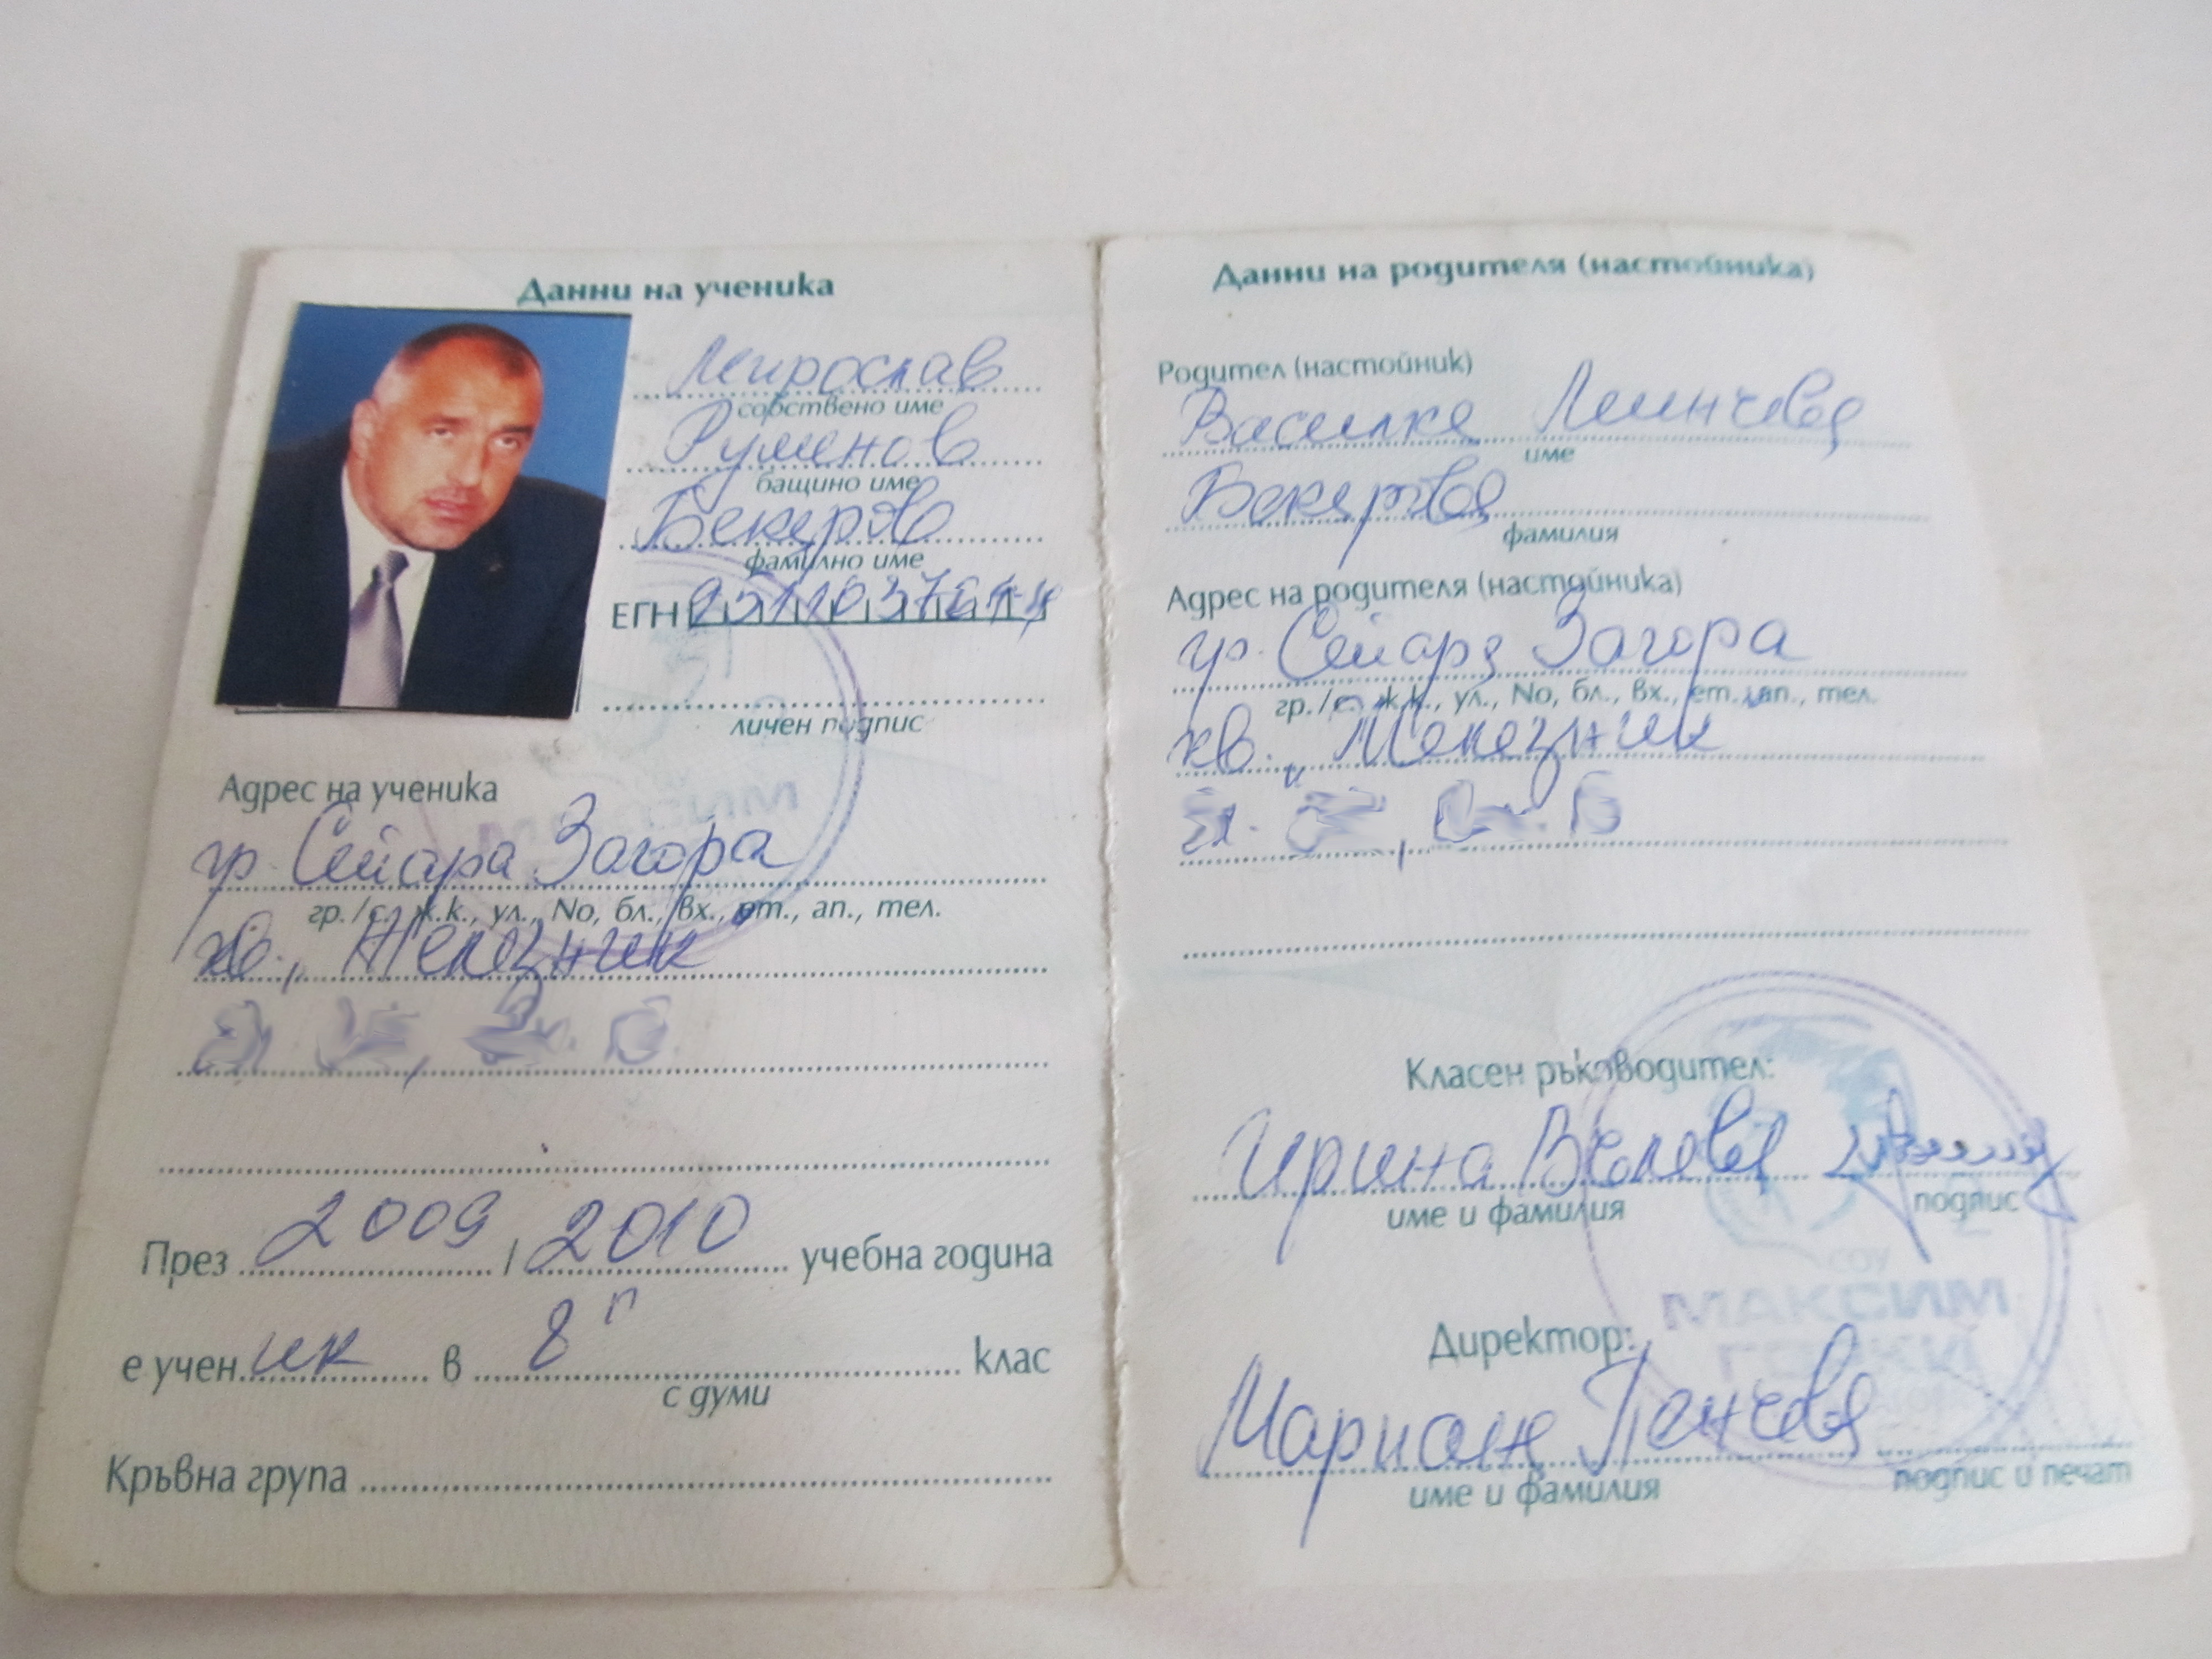 Данни на ученика
Мирослав
собствено име
Руменов
бащино име
Бекяров
фамилно име
ЕГН
личен подпис
Адрес на ученика
гр. Стара Загора
гр./с., ж.к., ул., No, бл., вх., ет., ап., тел.
кв. „Железник
През 2009 / 2010 учебна година
е ученик в 8 клас
с думи
Кръвна група
Данни на родителя (настойника)
Родител (настойник)
Василка Минчева
име
Бекярова
фамилия
Адрес на родителя (настойника)
гр. Стара Загора
гр./с., ж.к., ул., No, бл., вх., ет., ап., тел.
кв. „Железник
Класен ръководител:
Ирина Велева
име и фамилия подпис
СОУ
МАКСИМ
ГОРКИ
Директор:
Мариан Пенчева
име и фамилия подпис и печат